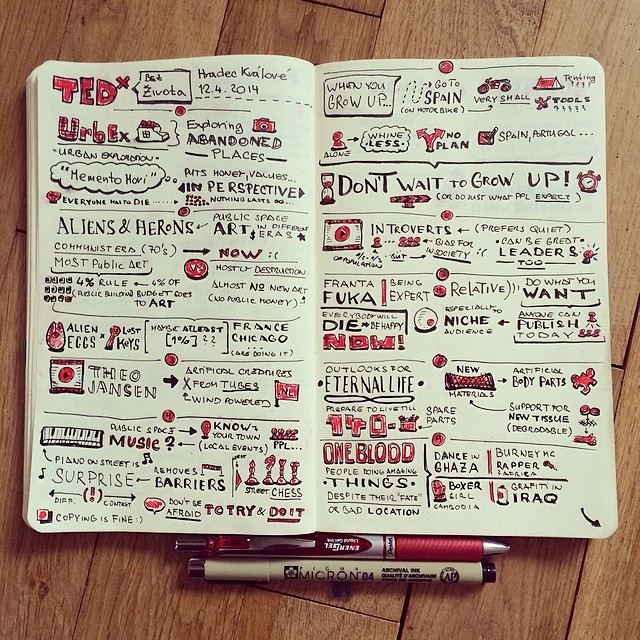 TEDx
BEZ
Života
Hradec Králové
12.4.2014
UrbEx
Exploring
ABANDONED
PLACES
"URBAN EXPLORATION"
"Memento Mori"
PUTS MONEY, VALUES...
IN PERSPECTIVE
EVERYONE HAS TO DIE
NOTHING LASTS
ALIENS & HERONS
PUBLIC SPACE
ART IN DIFFERENT
ERAS
COMMUNIST ERA (70's)
MOST PUBLIC ART
NOW :(
VS
MOSTLY DESTRUCTION
4% RULE
4% OF
(PUBLIC BUILDING BUDGET GOES
TO ART
ALMOST NO NEW ART
(NO PUBLIC MONEY)
ALIEN
EGGS
LOST
KEYS
MAYBE AT LEAST
[1%] ??
FRANCE
CHICAGO
(ARE DOING IT)
THEO
JANSEN
ARTIFICIAL CREATURES
FROM TUBES
WIND POWERED
NL
PUBLIC SPACE
MUSIC?
KNOW
YOUR TOWN
(LOCAL EVENTS)
PPL...
PIANO ON STREET IS
SURPRISE
DIFF. (!) CONTEXT
REMOVES
BARRIERS
STREET CHESS
COPYING IS FINE :)
DON'T BE
AFRAID
TO TRY & DO IT
WHEN YOU
GROW UP...
GO TO
SPAIN
(ON MOTORBIKE)
VERY SMALL
TOOLS
?????
ALONE
WHINE
LESS
NO
PLAN
SPAIN, PORTUGAL...
DON'T WAIT TO GROW UP!
(OR DO JUST WHAT PPL EXPECT)
INTROVERTS
(PREFERS QUIET)
OF POPULATION
BUT
BIAS FOR
IN SOCIETY :(
CAN BE GREAT
LEADERS
TOO
FRANTA
FUKA
BEING
EXPERT
RELATIVE))
DO WHAT YOU
WANT
EVERYBODY WILL
DIE BE HAPPY
NOW!
ESPECIALLY TO
NICHE
AUDIENCE
ANYONE CAN
PUBLISH
TODAY
OUTLOOKS FOR
ETERNAL LIFE
NEW
MATERIALS
ARTIFICIAL
BODY PARTS
PREPARE TO LIVE TILL
140
SPARE
PARTS
SUPPORT FOR
NEW TISSUE
(DEGRADABLE)
ONE BLOOD
PEOPLE DOING AMAZING
THINGS
DESPITE THEIR "FATE"
OR BAD LOCATION
DANCE IN
GHAZA
BURNEY MC
RAPPER
AFRICA
BOXER
GIRL
CAMBODIA
GRAFITI IN
IRAQ
ENERGEL
Liquid Gel Ink
Pentel
SIGMA
MICRON 04
ARCHIVAL INK
QUALITÉ D'ARCHIVAGE
AP